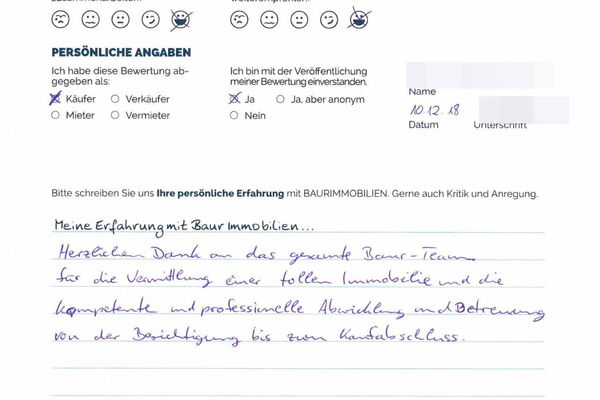 PERSÖNLICHE ANGABEN
Ich habe diese Bewertung ab-
gegeben als:
Käufer Verkäufer
Mieter Vermieter
Ich bin mit der Veröffentlichung
meiner Bewertung einverstanden.
Ja Ja, aber anonym
Nein
Name
10.12.18
Datum Unterschrift
Bitte schreiben Sie uns Ihre persönliche Erfahrung mit BAURIMMOBILIEN. Gerne auch Kritik und Anregung.
Meine Erfahrung mit Baur Immobilien...
Herzlichen Dank an das gesamte Baur-Team
für die Vermittlung einer tollen Immobilie und die
kompetente und professionelle Abwicklung und Betreuung
von der Besichtigung bis zum Kaufabschluss.